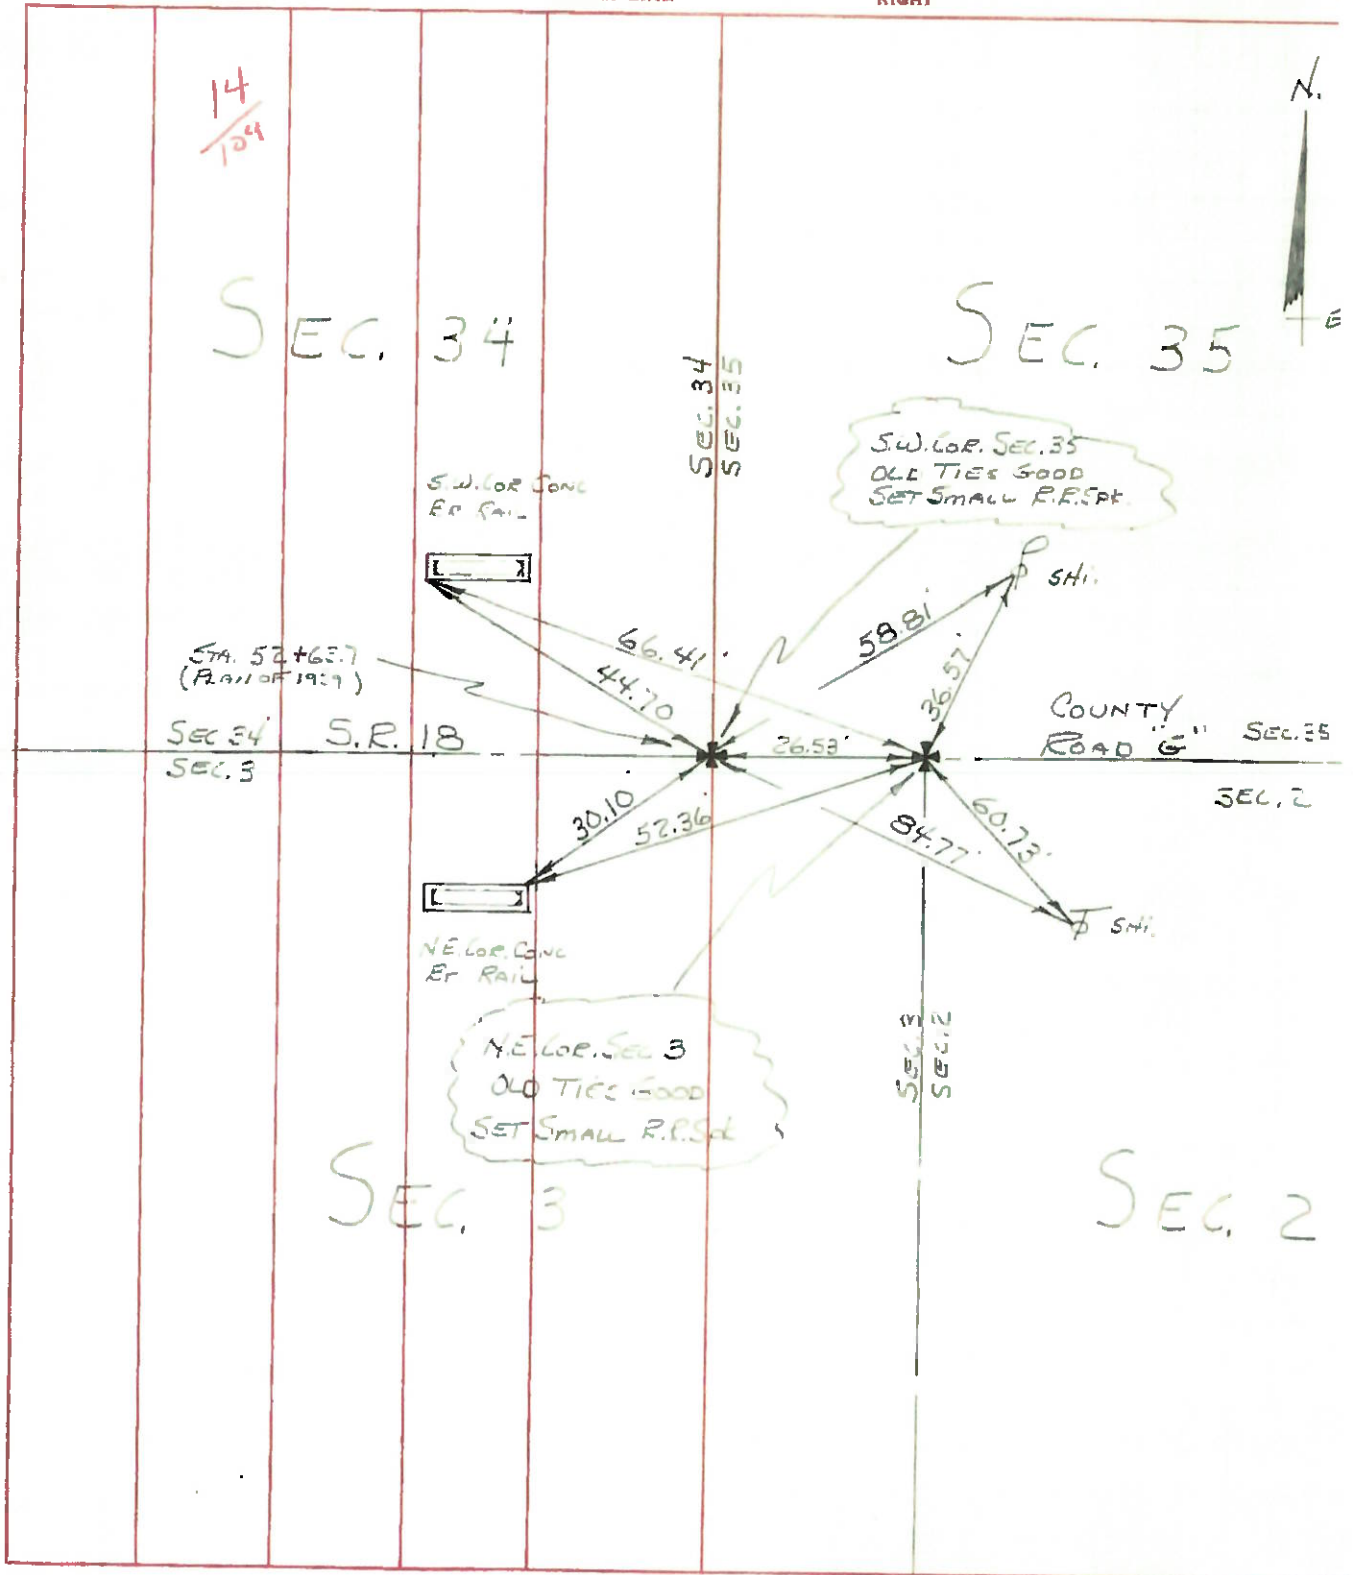 RIGHT
14
104
N.
E
SEC. 34
SEC. 35
SEC. 34
SEC. 35
S.W. COR. SEC. 35
OLD TIES GOOD
SET SMALL R.R. SPK.
S.W. COR CONC
BR RAIL
SHI.
58.81'
66.41'
44.70
36.57'
STA. 52+63.7
(PLAN OF 1929)
COUNTY
ROAD "G"
SEC. 35
SEC 34
S.R. 18
SEC. 3
26.53'
SEC. 2
30.10
52.36'
84.77'
60.73'
SHI.
N.E. COR. CONC
BR RAIL
N.E. COR. SEC 3
OLD TIES GOOD
SET SMALL R.R. SPK
SEC. 3
SEC. 2
SEC. 3
SEC. 2